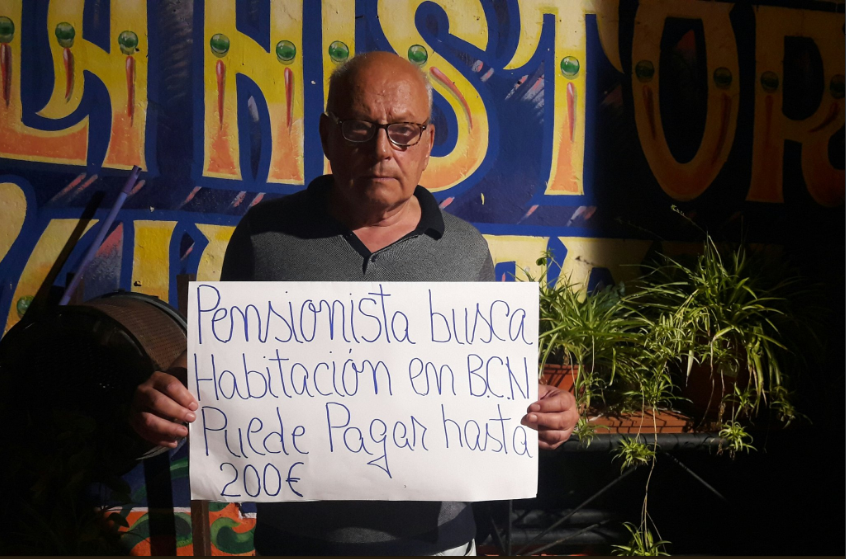 LA HISTOR
Pensionista busca
Habitación en B.C.N
Puede Pagar hasta
200€